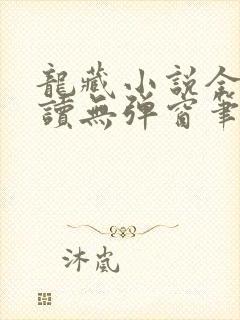 龍藏小說全
讀無彈窗筆
沐嵐